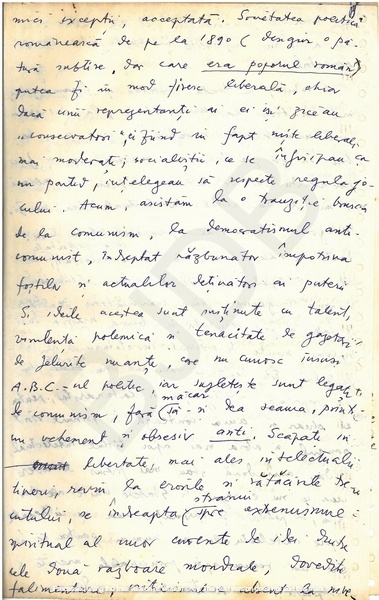 mici excepții, acceptată. Societatea politică
românească de pe la 1890 (desigur o pă-
tură subțire, dar care era poporul român)
putea fi în mod firesc liberală, chiar
dacă unii reprezentanți ai ei își ziceau
"conservatori", ei fiind în fapt niște liberali
mai moderați; socialiștii, ce se înfiripau ca
un partid, înțelegeau să respecte regula jo-
cului. Acum, asistăm la o tranziție bruscă
de la comunism, la democratismul anti-
comunist, îndreptat răzbunător împotriva
foștilor și actualilor deținători ai puterii
Și ideile acestea sunt susținute cu talent,
virulență polemică și tenacitate de gazetari
de felurite nuanțe, care nu cunosc însuși
A.B.C.-ul politic, iar sufletește sunt legați
măcar
de comunism, fără să-și dea seama, printr-
un vehement și obsesiv anti. Scăpate în
libertate, mai ales intelectualii
tineri, revin la erorile și rătăcirile tre-
străinii
cutului, se îndreaptă spre extremismul
spiritual al unor curente de idei dintre
cele două războaie mondiale, dovedite
falimentare,